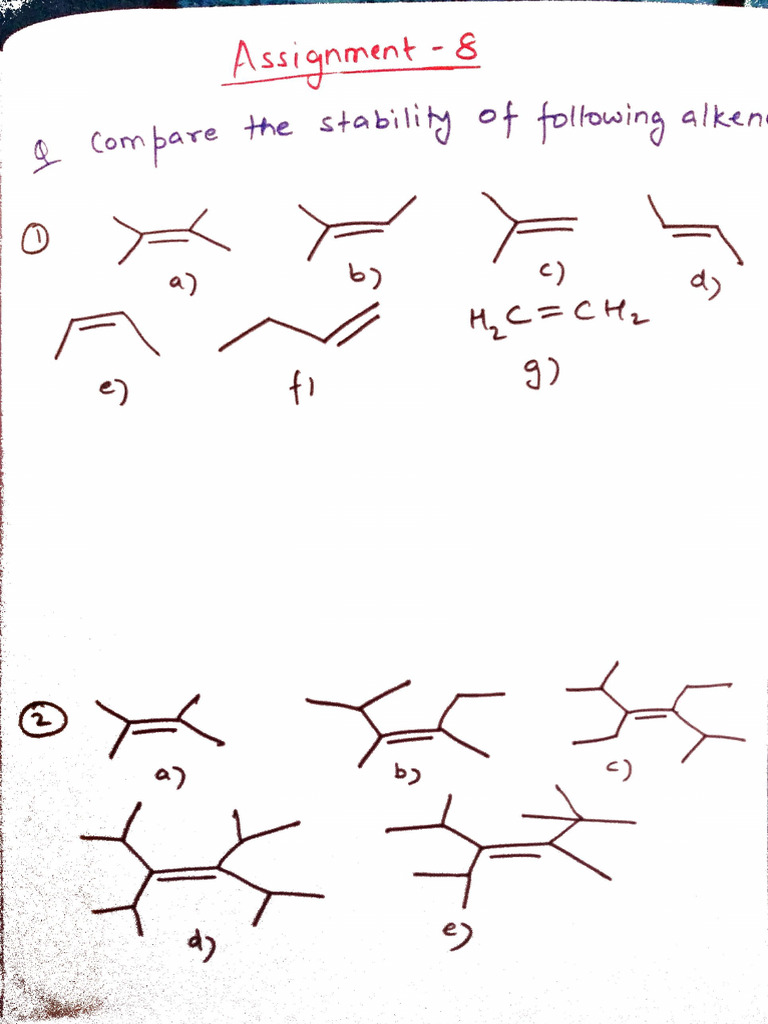 Assignment - 8
Q Compare the stability of following alken
①
a) b) c) d)
H₂C=CH₂
e) f) g)
②
a) b) c)
d) e)